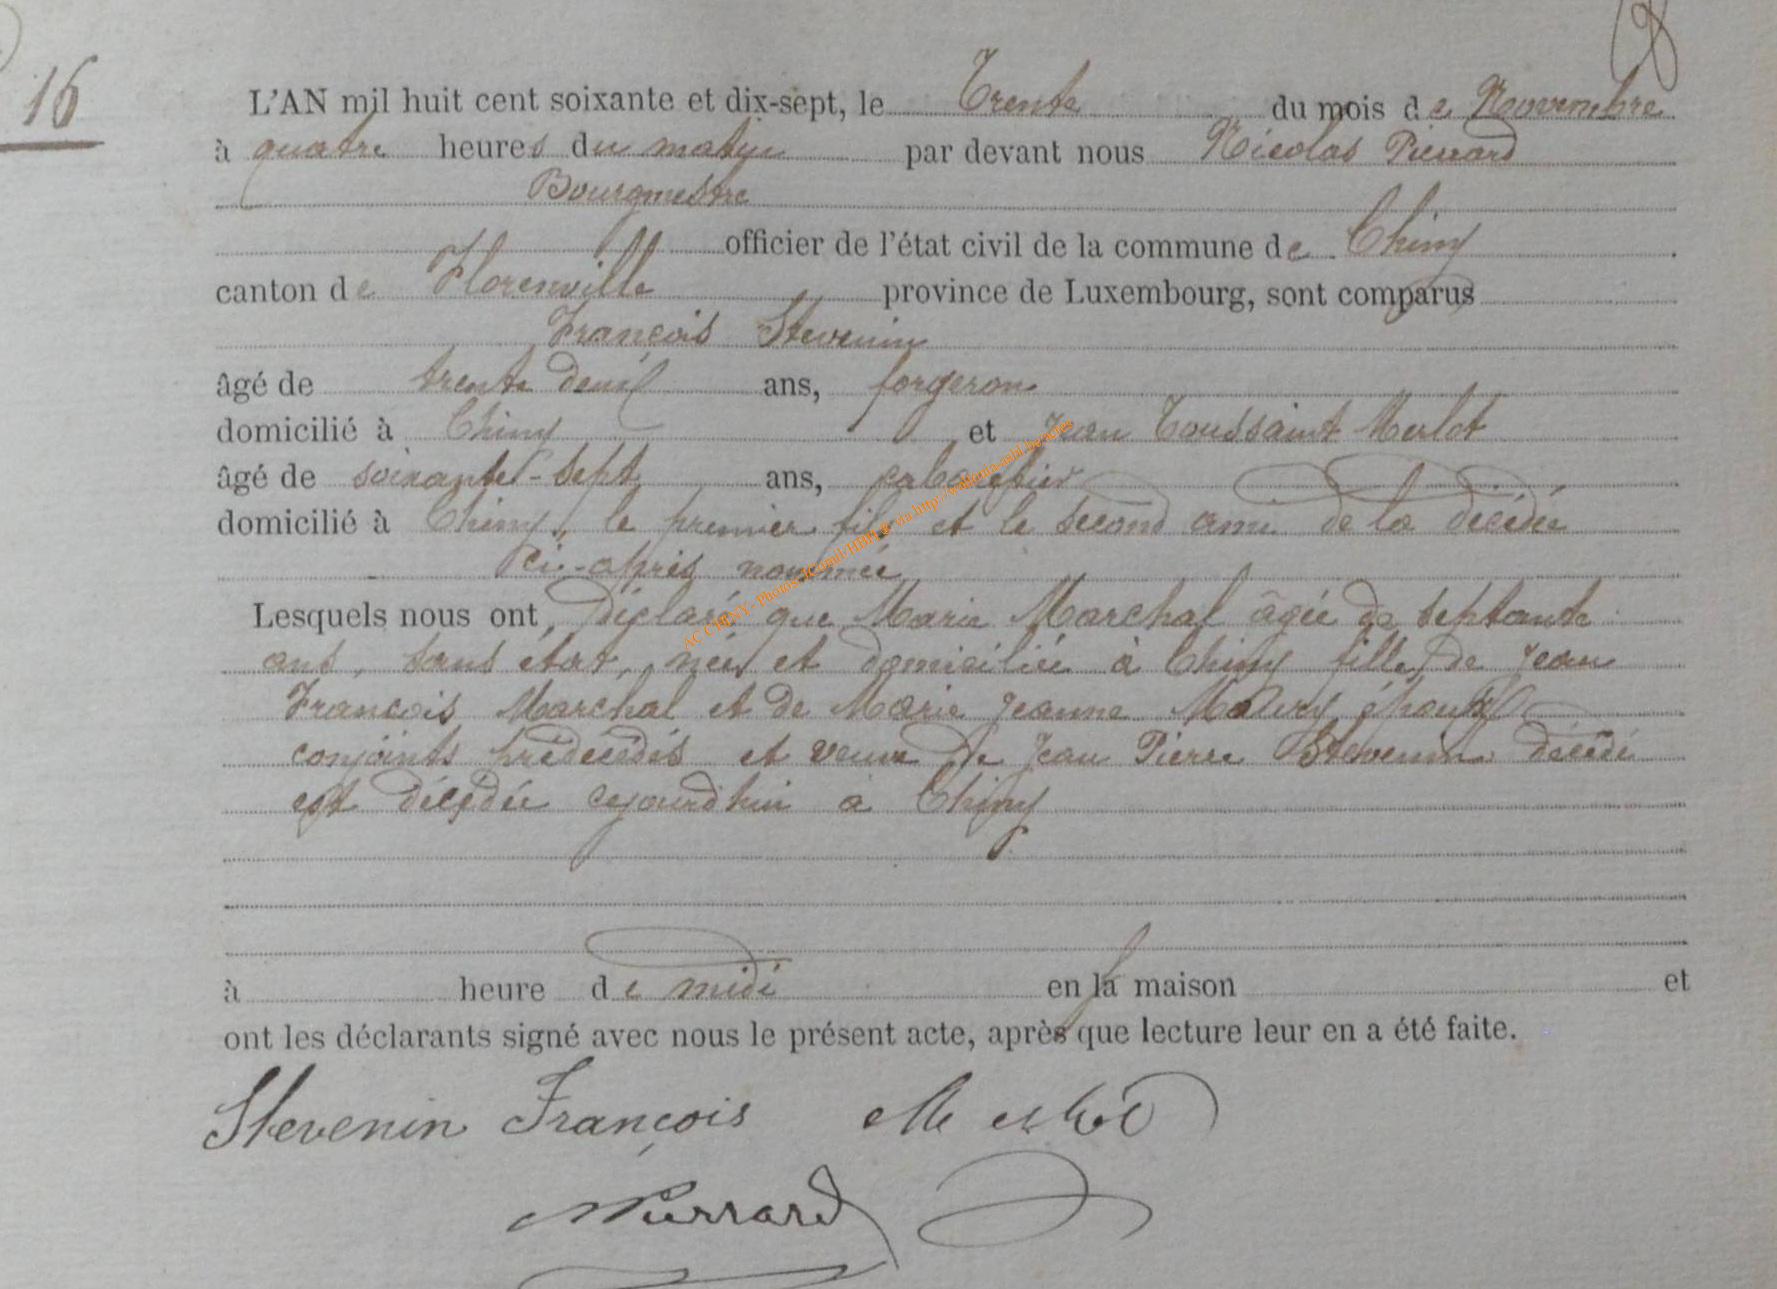 16
L'AN mil huit cent soixante et dix-sept, le Trente du mois de Novembre
à quatre heures du matin par devant nous Nicolas Pierrard
Bourgmestre
officier de l'état civil de la commune de Chiny
canton de Florenville province de Luxembourg, sont comparus
François Stevenin
âgé de trente deux ans, forgeron
domicilié à Chiny et Jean Toussaint Merlot
âgé de soixante-sept ans, cabaretier
domicilié à Chiny, le premier fils et le second ami de la décédée
ci-après nommée
Lesquels nous ont déclaré que Marie Marchal âgée de septante
ans, sans état, née et domiciliée à Chiny fille de Jean
François Marchal et de Marie Jeanne
conjoints prédécédés et veuve de Jean Pierre Stevenin décédé
est décédée cejourd'hui à Chiny
à heure de midi en la maison et
ont les déclarants signé avec nous le présent acte, après que lecture leur en a été faite.
Stevenin François Merlot
NPierrard